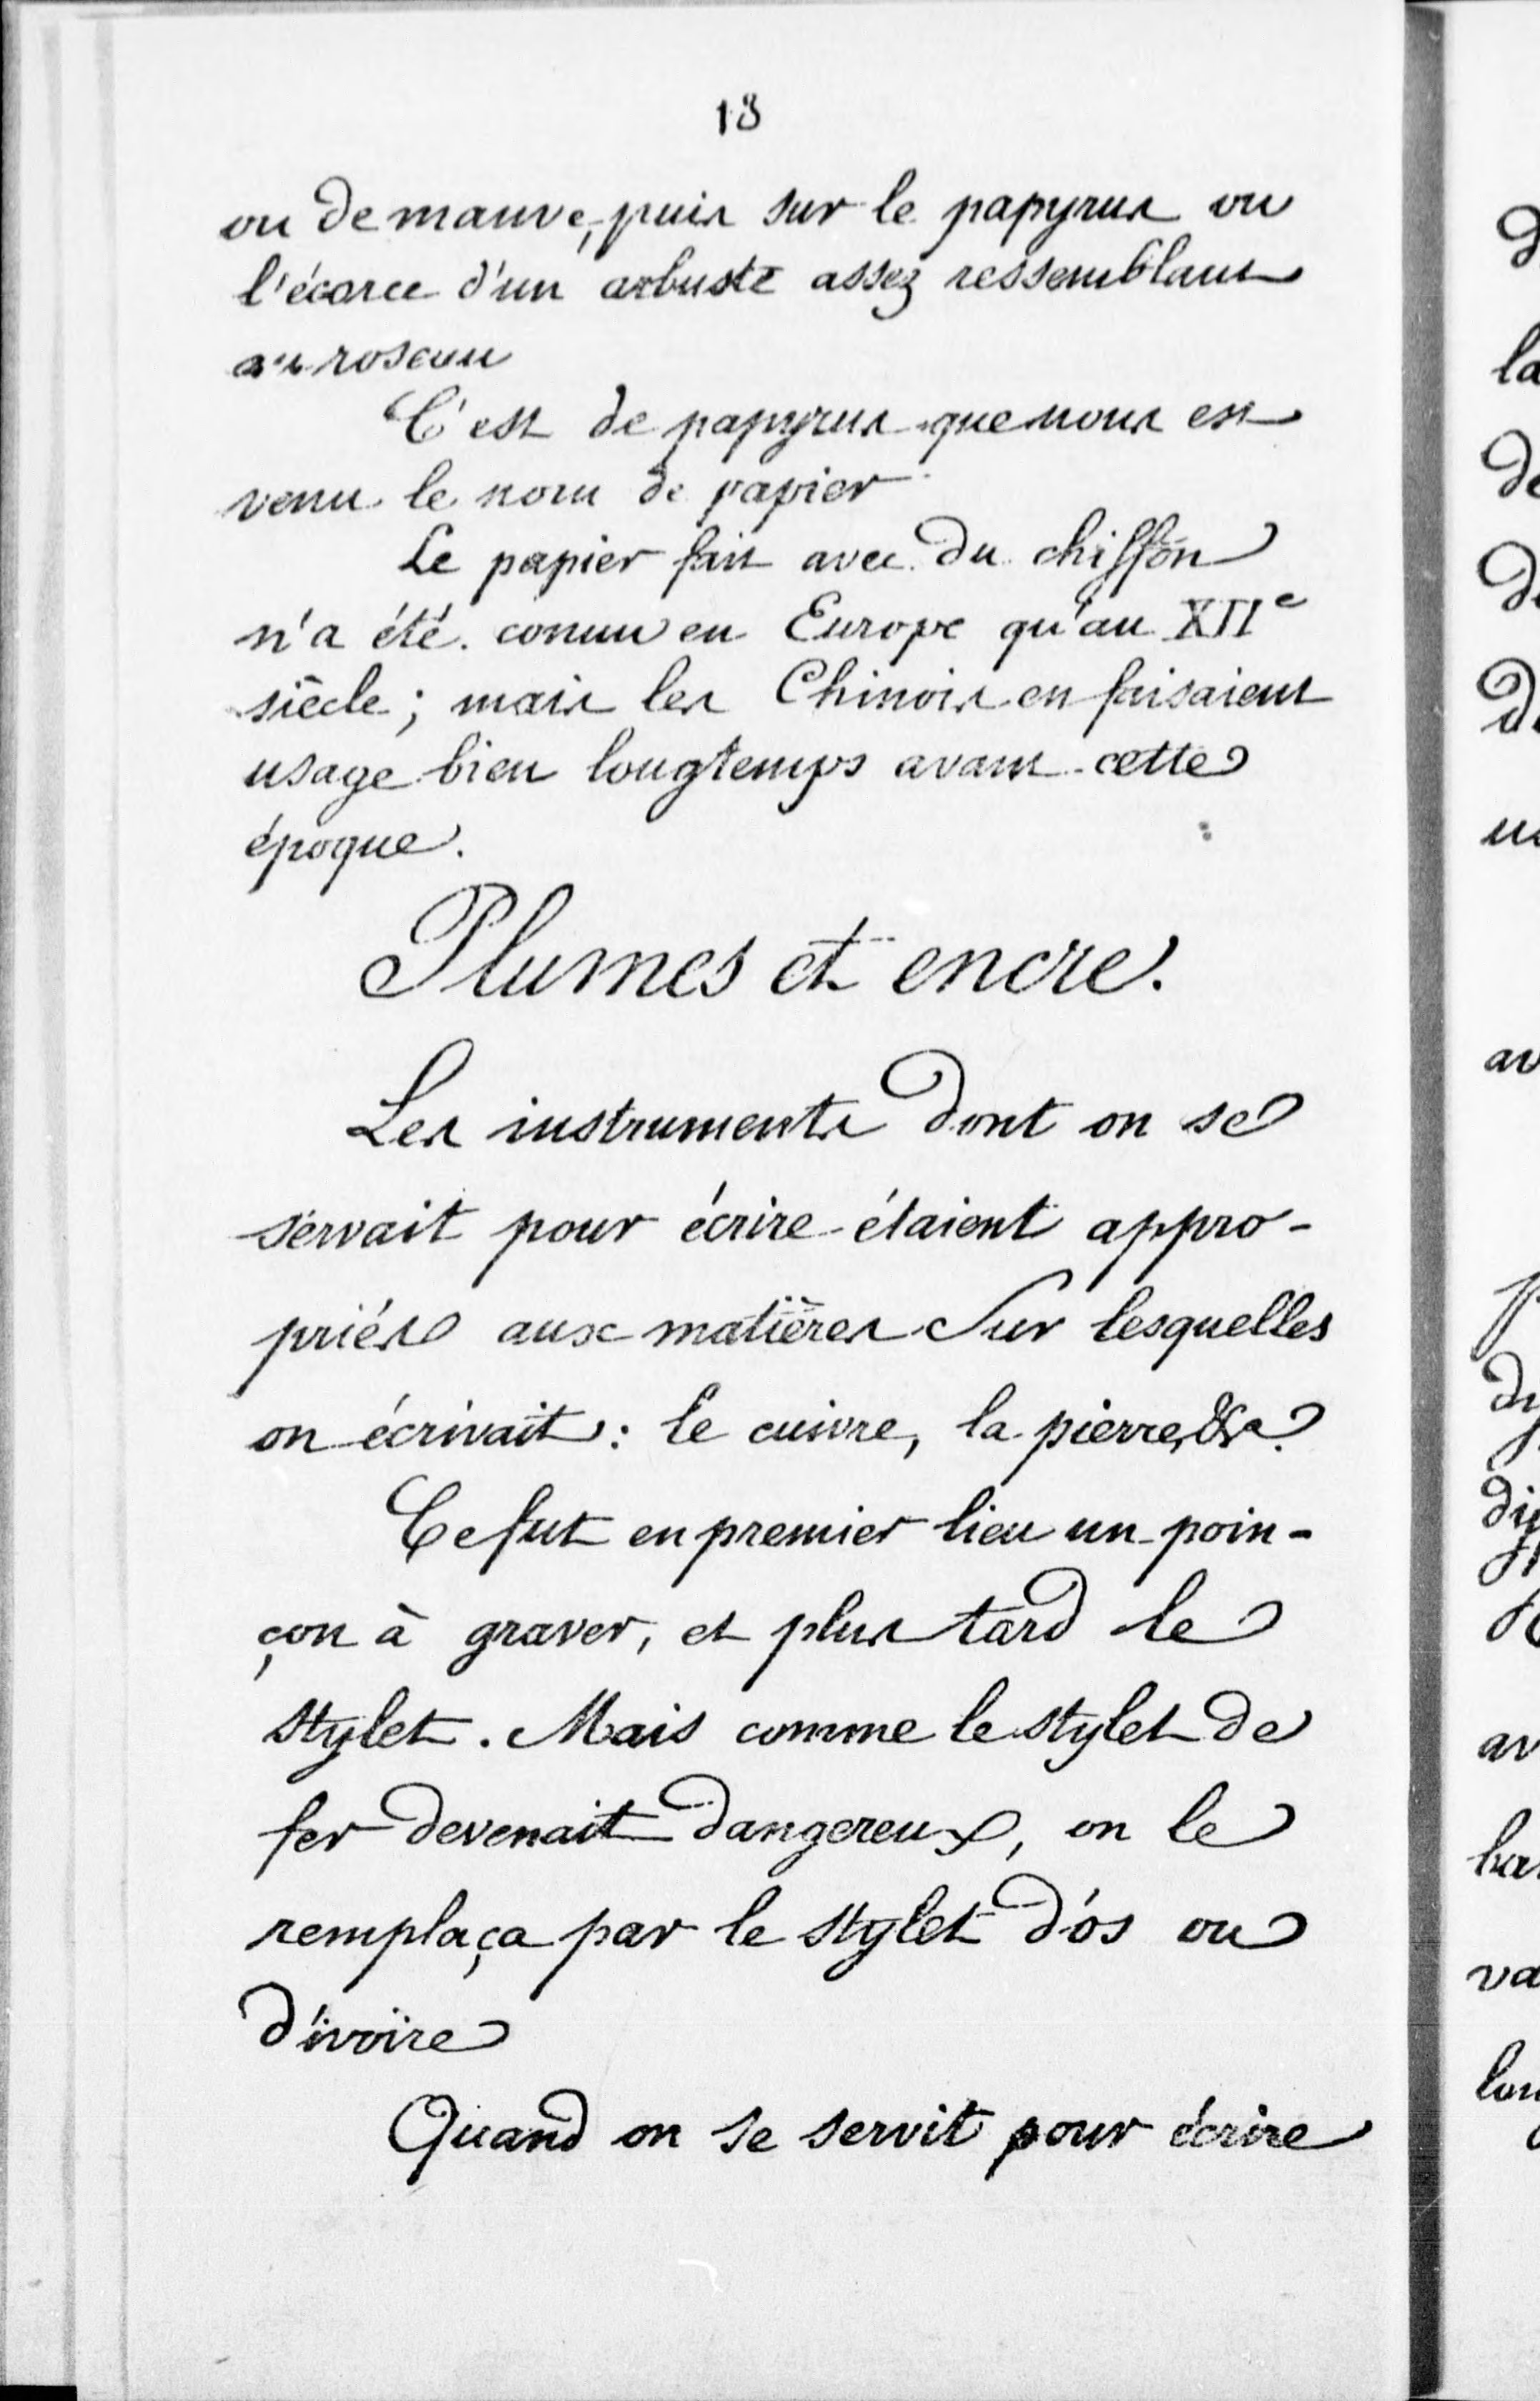 18
ou de mauve, puis sur le papyrus ou
l'écorce d'un arbuste assez ressemblant
au roseau
C'est de papyrus que nous est
venu le nom de papier
Le papier fait avec du chiffon
n'a été connu en Europe qu'au XIIe
siècle; mais les Chinois en faisaient
usage bien longtemps avant cette
époque.
Plumes et encre.
Les instruments dont on se
servait pour écrire étaient appro-
priés aux matières sur lesquelles
on écrivait: le cuivre, la pierre, &a.
Ce fut en premier lieu un poin-
çon à graver, et plus tard le
stylet. Mais comme le stylet de
fer devenait dangereux, on le
remplaça par le stylet d'os ou
d'ivoire
Quand on se servit pour écrire